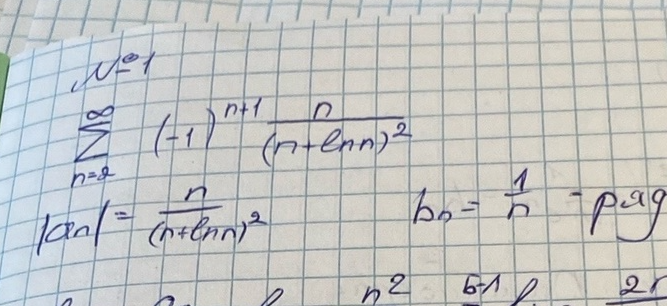 №1
∑_{n=2}^{∞} (-1)^{n+1} n/(n+ln n)^2
|an| = n/(n+ln n)^2 bn = 1/n - ряд
n^2